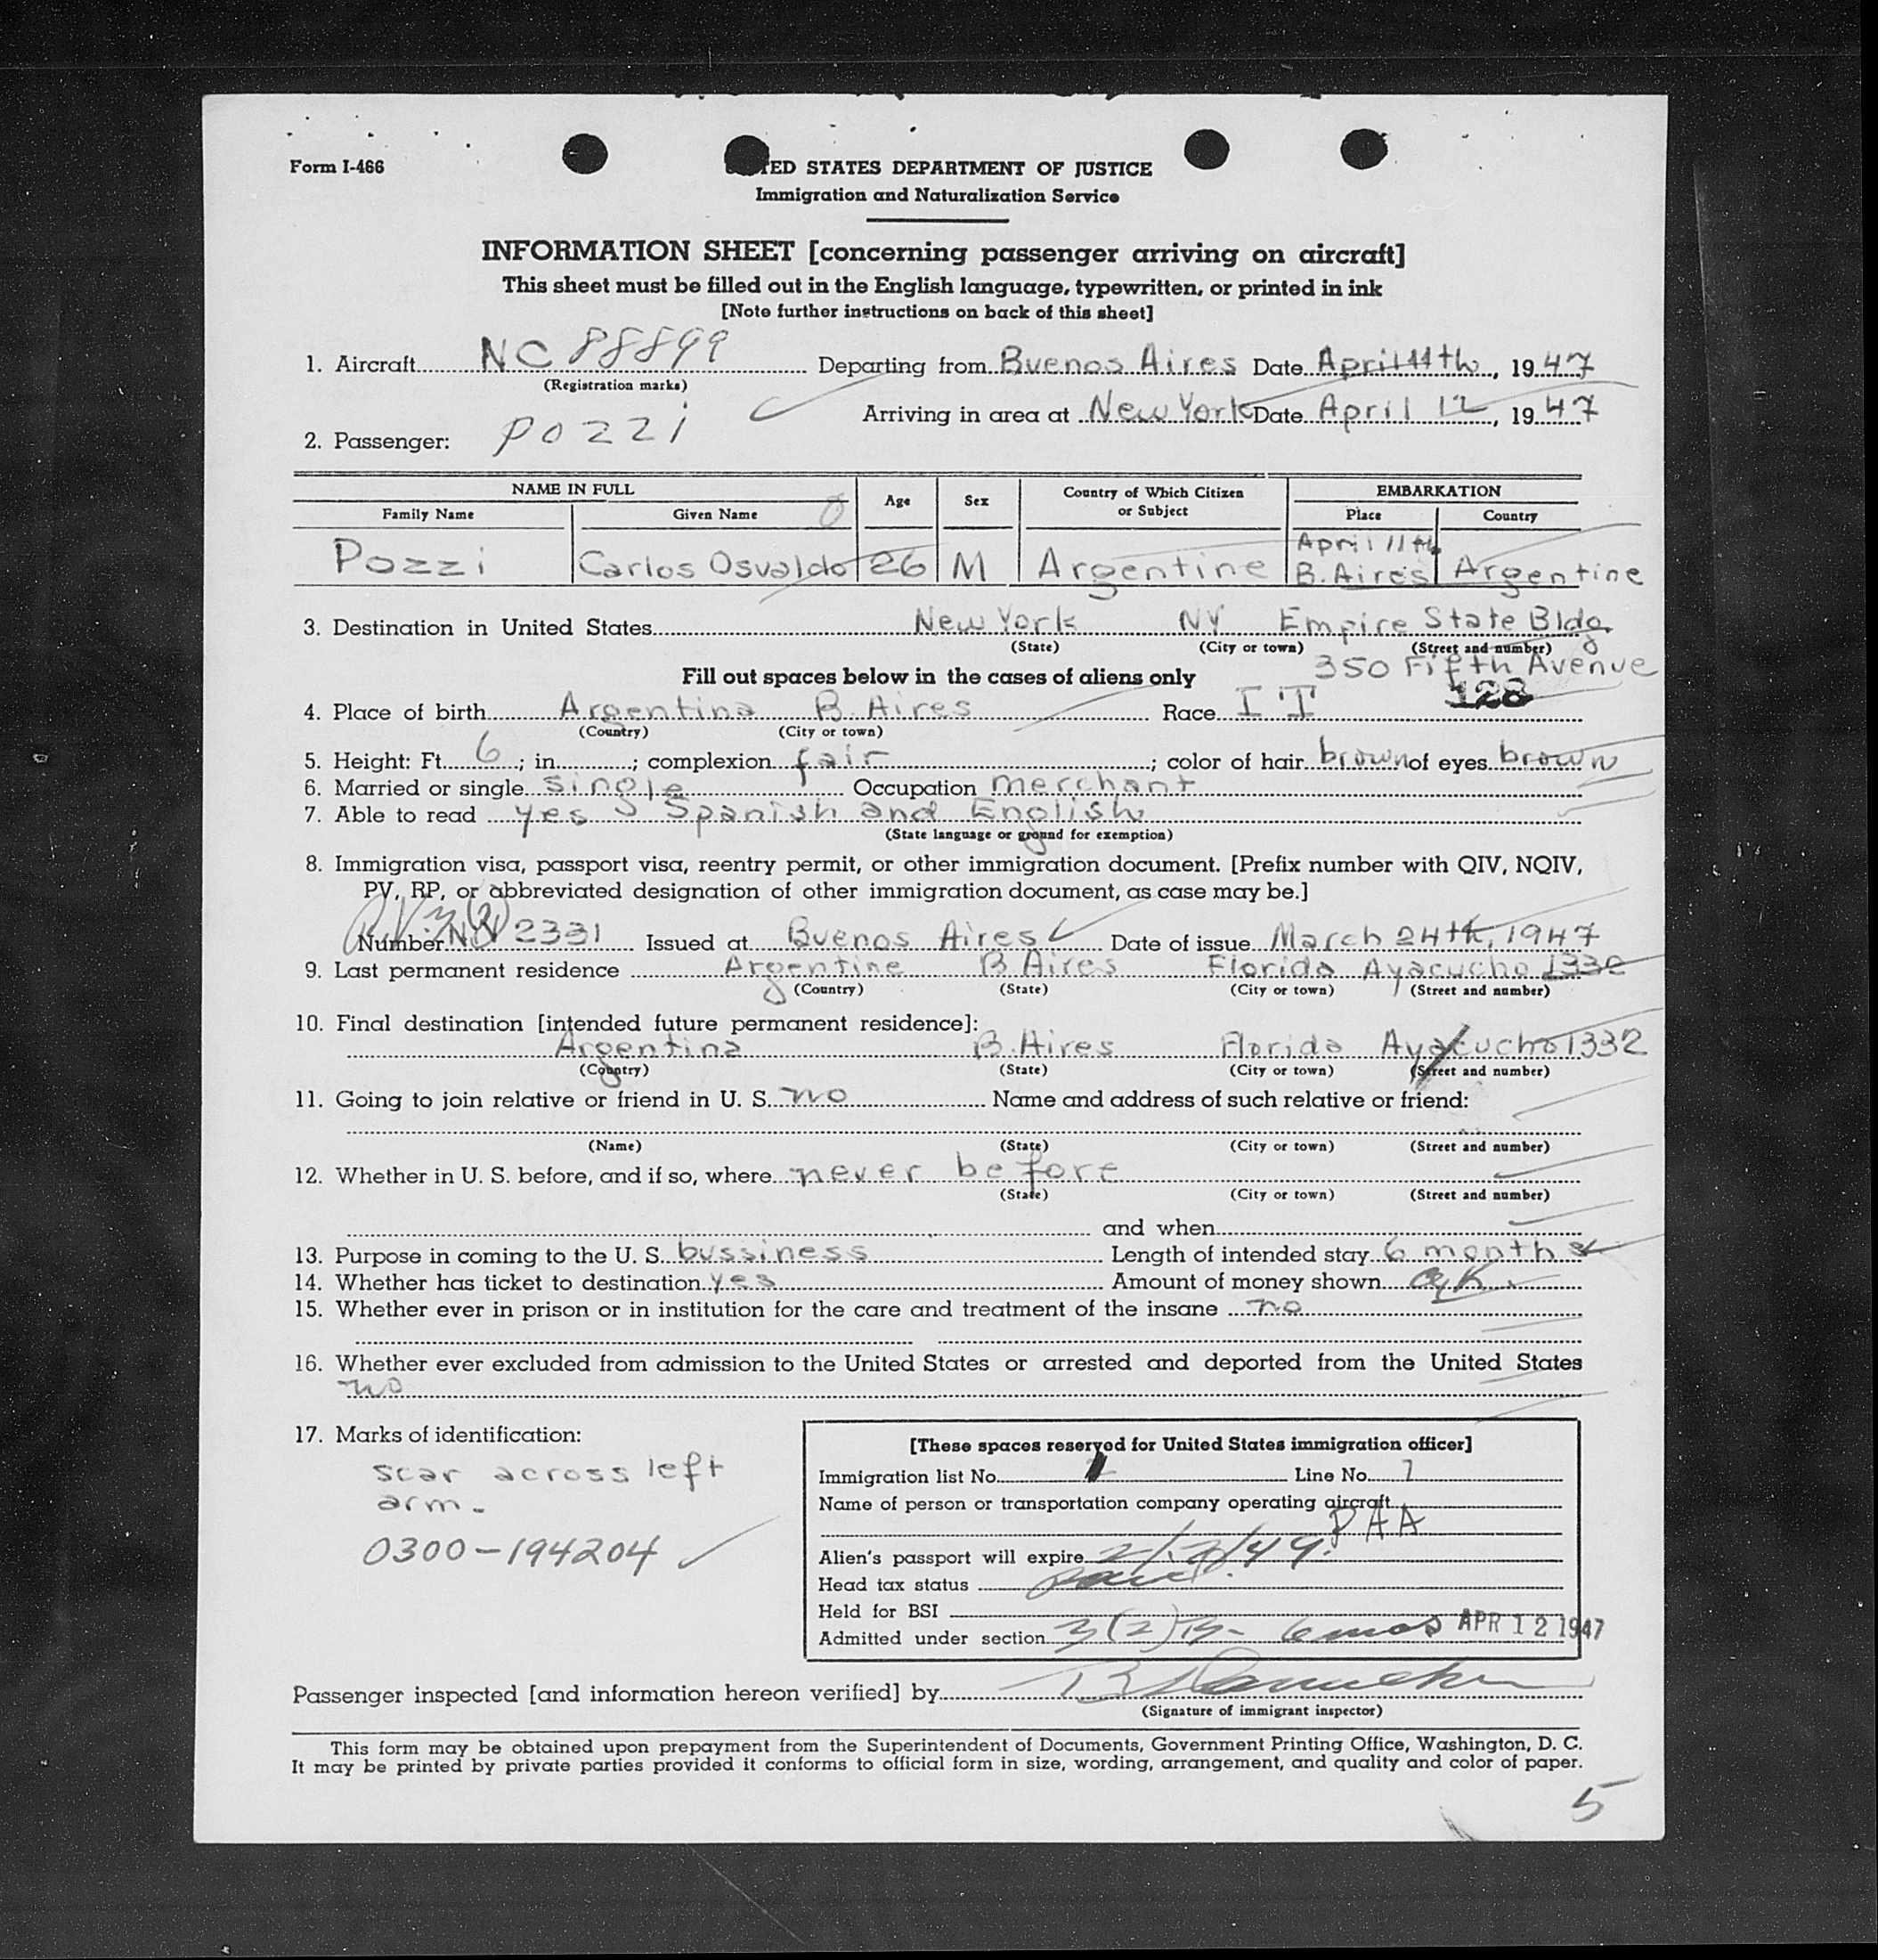 Form I-466
ED STATES DEPARTMENT OF JUSTICE
Immigration and Naturalization Service
INFORMATION SHEET [concerning passenger arriving on aircraft]
This sheet must be filled out in the English language, typewritten, or printed in ink
[Note further instructions on back of this sheet]
1. Aircraft NC 88899 Departing from Buenos Aires Date April 11th, 1947
(Registration marks)
Arriving in area at New York Date April 12, 1947
2. Passenger: Pozzi
NAME IN FULL Age Sex Country of Which Citizen or Subject EMBARKATION
Family Name Given Name Place Country
April 11th
Pozzi Carlos Osvaldo 26 M Argentine B. Aires Argentine
3. Destination in United States New York NY Empire State Bldg.
(State) (City or town) (Street and number)
Fill out spaces below in the cases of aliens only 350 Fifth Avenue
4. Place of birth Argentina B. Aires Race IT 128
(Country) (City or town)
5. Height: Ft. 6; in. ; complexion fair; color of hair brown of eyes brown
6. Married or single single Occupation merchant
7. Able to read yes Spanish and English
(State language or ground for exemption)
8. Immigration visa, passport visa, reentry permit, or other immigration document. [Prefix number with QIV, NQIV,
PV, RP, or abbreviated designation of other immigration document, as case may be.]
Number 2331 Issued at Buenos Aires Date of issue March 24th, 1947
9. Last permanent residence Argentine B Aires Florida Ayacucho
(Country) (State) (City or town) (Street and number)
10. Final destination [intended future permanent residence]:
Argentina B. Aires Florida Ayacucho 1332
(Country) (State) (City or town) (Street and number)
11. Going to join relative or friend in U. S. no Name and address of such relative or friend:
(Name) (State) (City or town) (Street and number)
12. Whether in U. S. before, and if so, where never before
(State) (City or town) (Street and number)
and when
13. Purpose in coming to the U. S. bussiness Length of intended stay 6 months
14. Whether has ticket to destination yes Amount of money shown
15. Whether ever in prison or in institution for the care and treatment of the insane no
16. Whether ever excluded from admission to the United States or arrested and deported from the United States
no
17. Marks of identification:
scar across left
arm.
0300-194204
[These spaces reserved for United States immigration officer]
Immigration list No. Line No. 7
Name of person or transportation company operating aircraft
PAA
Alien's passport will expire
Head tax status
Held for BSI
Admitted under section 3(2)B- 6 mos APR 12 1947
Passenger inspected [and information hereon verified] by
(Signature of immigrant inspector)
This form may be obtained upon prepayment from the Superintendent of Documents, Government Printing Office, Washington, D. C.
It may be printed by private parties provided it conforms to official form in size, wording, arrangement, and quality and color of paper.
5